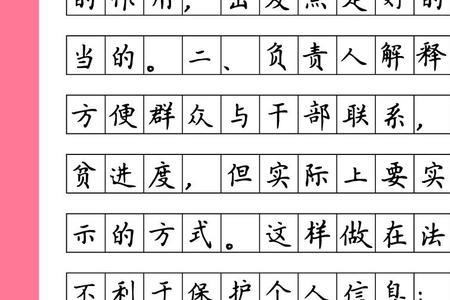 的作用，出发点是好的
当的。二、负责人解释
方便群众与干部联系，
贫进度，但实际上要实
示的方式。这样做在法
不利于保护个人信息；